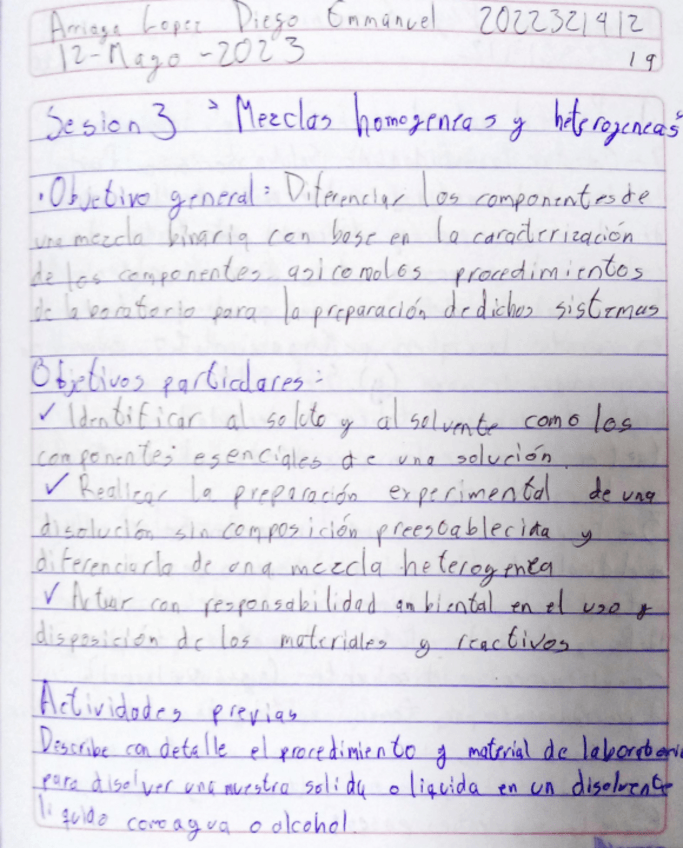 Arriaga Lopez Diego Emmanuel 2022321412
12-Mayo-2023 19
Sesion 3 "Mezclas homogeneas y heterogeneas"
·Objetivo general: Diferenciar los componentes de
una mezcla binaria con base en la caracterización
de los componentes asi como los procedimientos
de laboratorio para la preparación de dichos sistemas
Objetivos particulares:
✓ Identificar al soluto y al solvente como los
componentes esenciales de una solución.
✓ Realizar la preparación experimental de una
disolución sin composición preestablecida y
diferenciarla de una mezcla heterogenea
✓ Actuar con responsabilidad ambiental en el uso y
disposición de los materiales y reactivos
Actividades previas
Describe con detalle el procedimiento y material de laboratorio
para disolver una muestra solida o liquida en un disolvente
liquido como agua o alcohol.